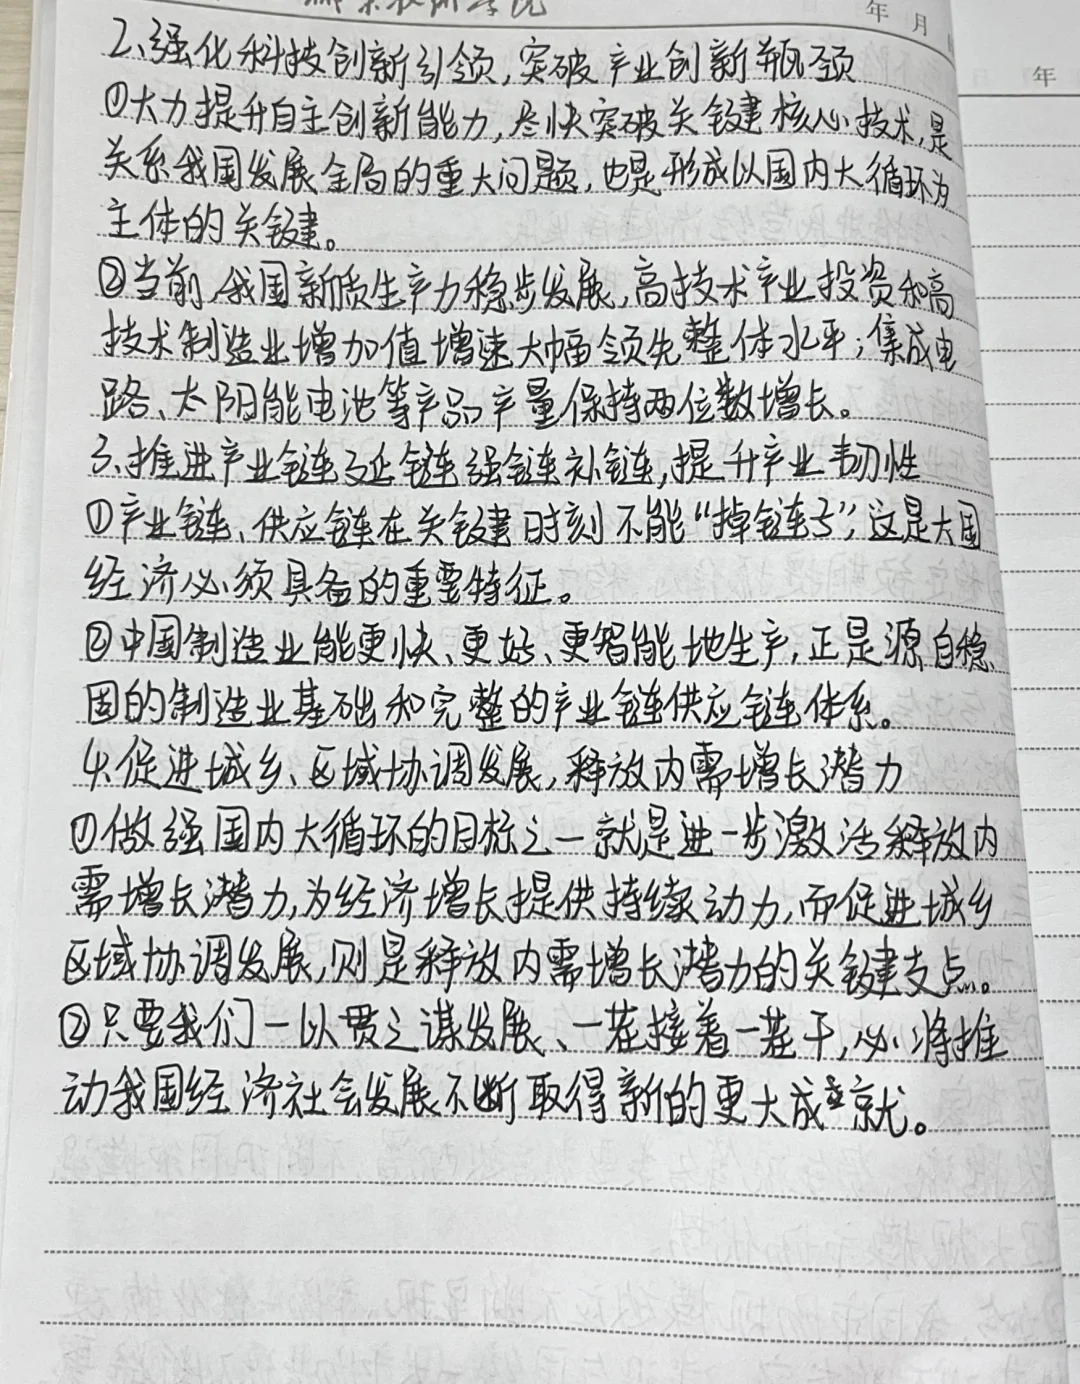 年 月
年
2、强化科技创新引领,突破产业创新瓶颈
①大力提升自主创新能力,尽快突破关键核心技术,是
关系我国发展全局的重大问题,也是形成以国内大循环为
主体的关键。
②当前,我国新质生产力稳步发展,高技术产业投资和高
技术制造业增加值增速大幅领先整体水平;集成电
路、太阳能电池等产品产量保持两位数增长。
3、推进产业链延链强链补链,提升产业韧性
①产业链、供应链在关键时刻不能“掉链子”,这是大国
经济必须具备的重要特征。
②中国制造业能更快、更好、更智能地生产,正是源自稳
固的制造业基础和完整的产业链供应链体系。
4、促进城乡、区域协调发展,释放内需增长潜力
①做强国内大循环的目标之一就是进一步激活释放内
需增长潜力,为经济增长提供持续动力,而促进城乡
区域协调发展,则是释放内需增长潜力的关键支点。
②只要我们一以贯之谋发展、一茬接着一茬干,必将推
动我国经济社会发展不断取得新的更大成就。